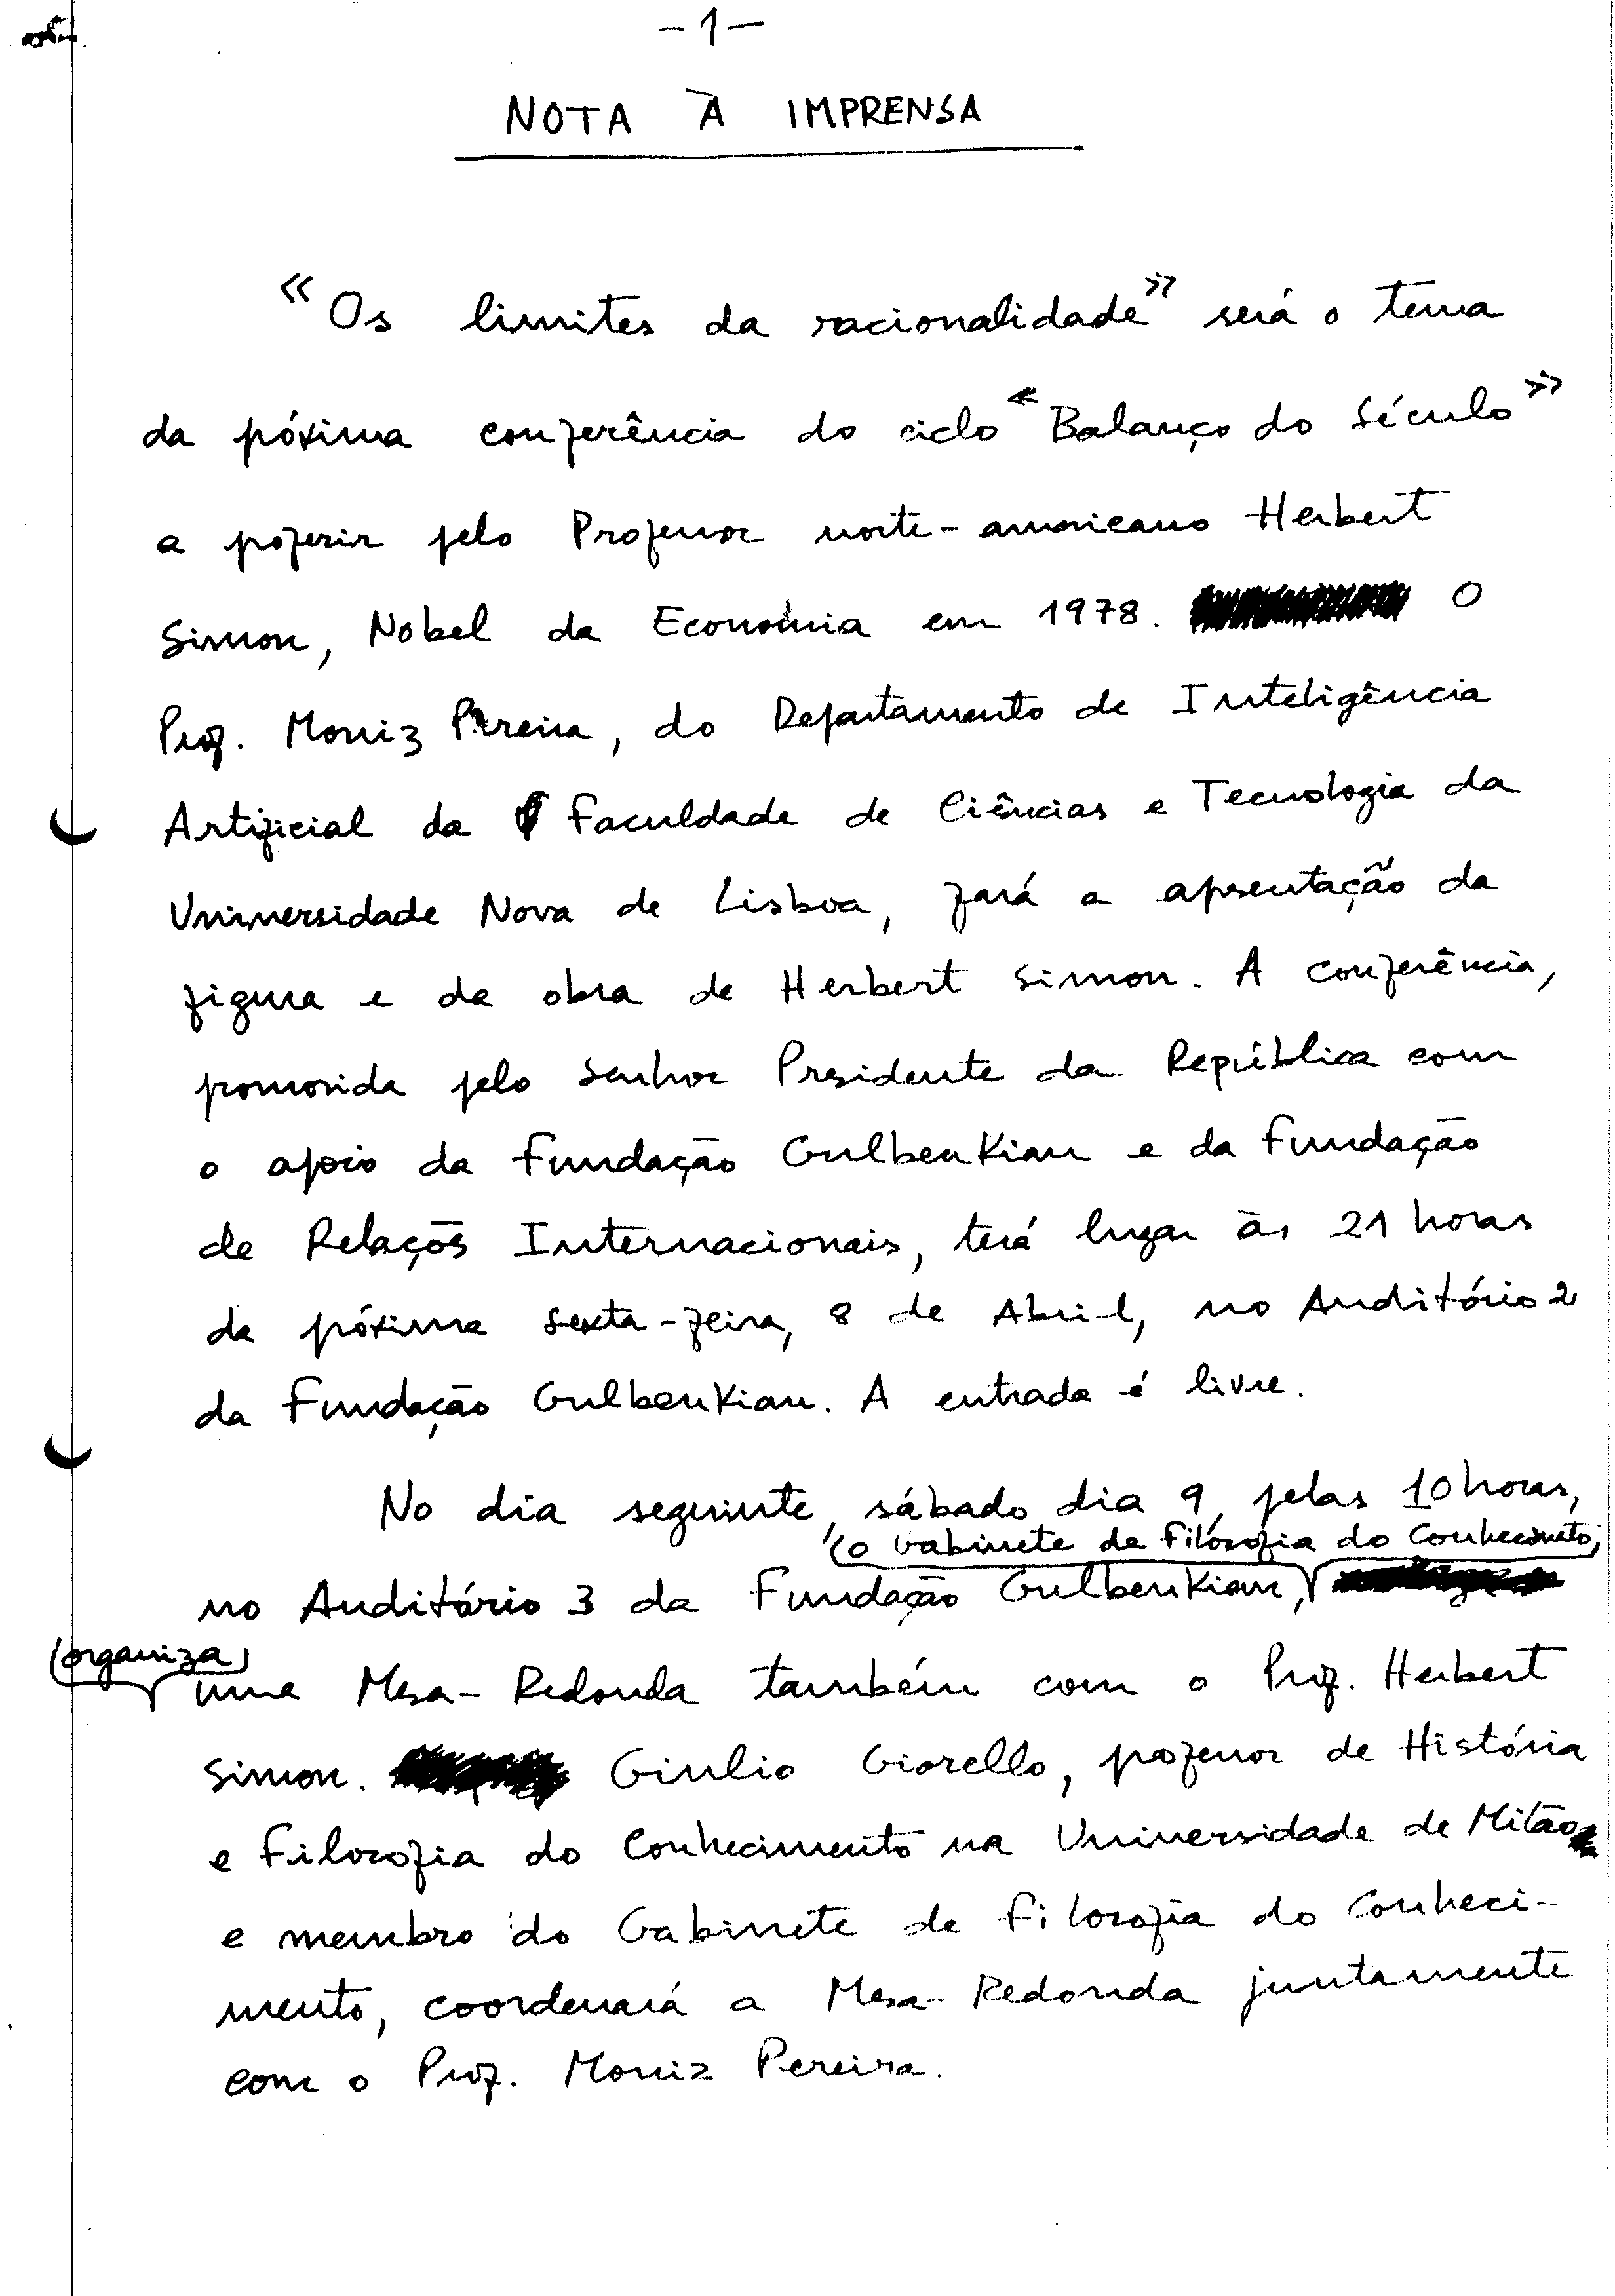 -1-
NOTA À IMPRENSA
«Os limites da racionalidade» será o tema
da próxima conferência do ciclo «Balanço do Século»
a proferir pelo Professor norte-americano Herbert
Simon, Nobel da Economia em 1978. O
Prof. Moniz Pereira, do Departamento de Inteligência
Artificial da Faculdade de Ciências e Tecnologia da
Universidade Nova de Lisboa, fará a apresentação da
figura e da obra de Herbert Simon. A conferência,
promovida pelo Senhor Presidente da República com
o apoio da Fundação Gulbenkian e da Fundação
de Relações Internacionais, terá lugar às 21 horas
da próxima sexta-feira, 8 de Abril, no Auditório 2
da Fundação Gulbenkian. A entrada é livre.
No dia seguinte, sábado dia 9, pelas 10 horas,
no Auditório 3 da Fundação Gulbenkian, o Gabinete de Filosofia do Conhecimento,
organiza uma Mesa-Redonda também com o Prof. Herbert
Simon. Giulio Giorello, professor de História
e Filosofia do Conhecimento na Universidade de Milão
e membro do Gabinete de Filosofia do Conheci-
mento, coordenará a Mesa-Redonda juntamente
com o Prof. Moniz Pereira.